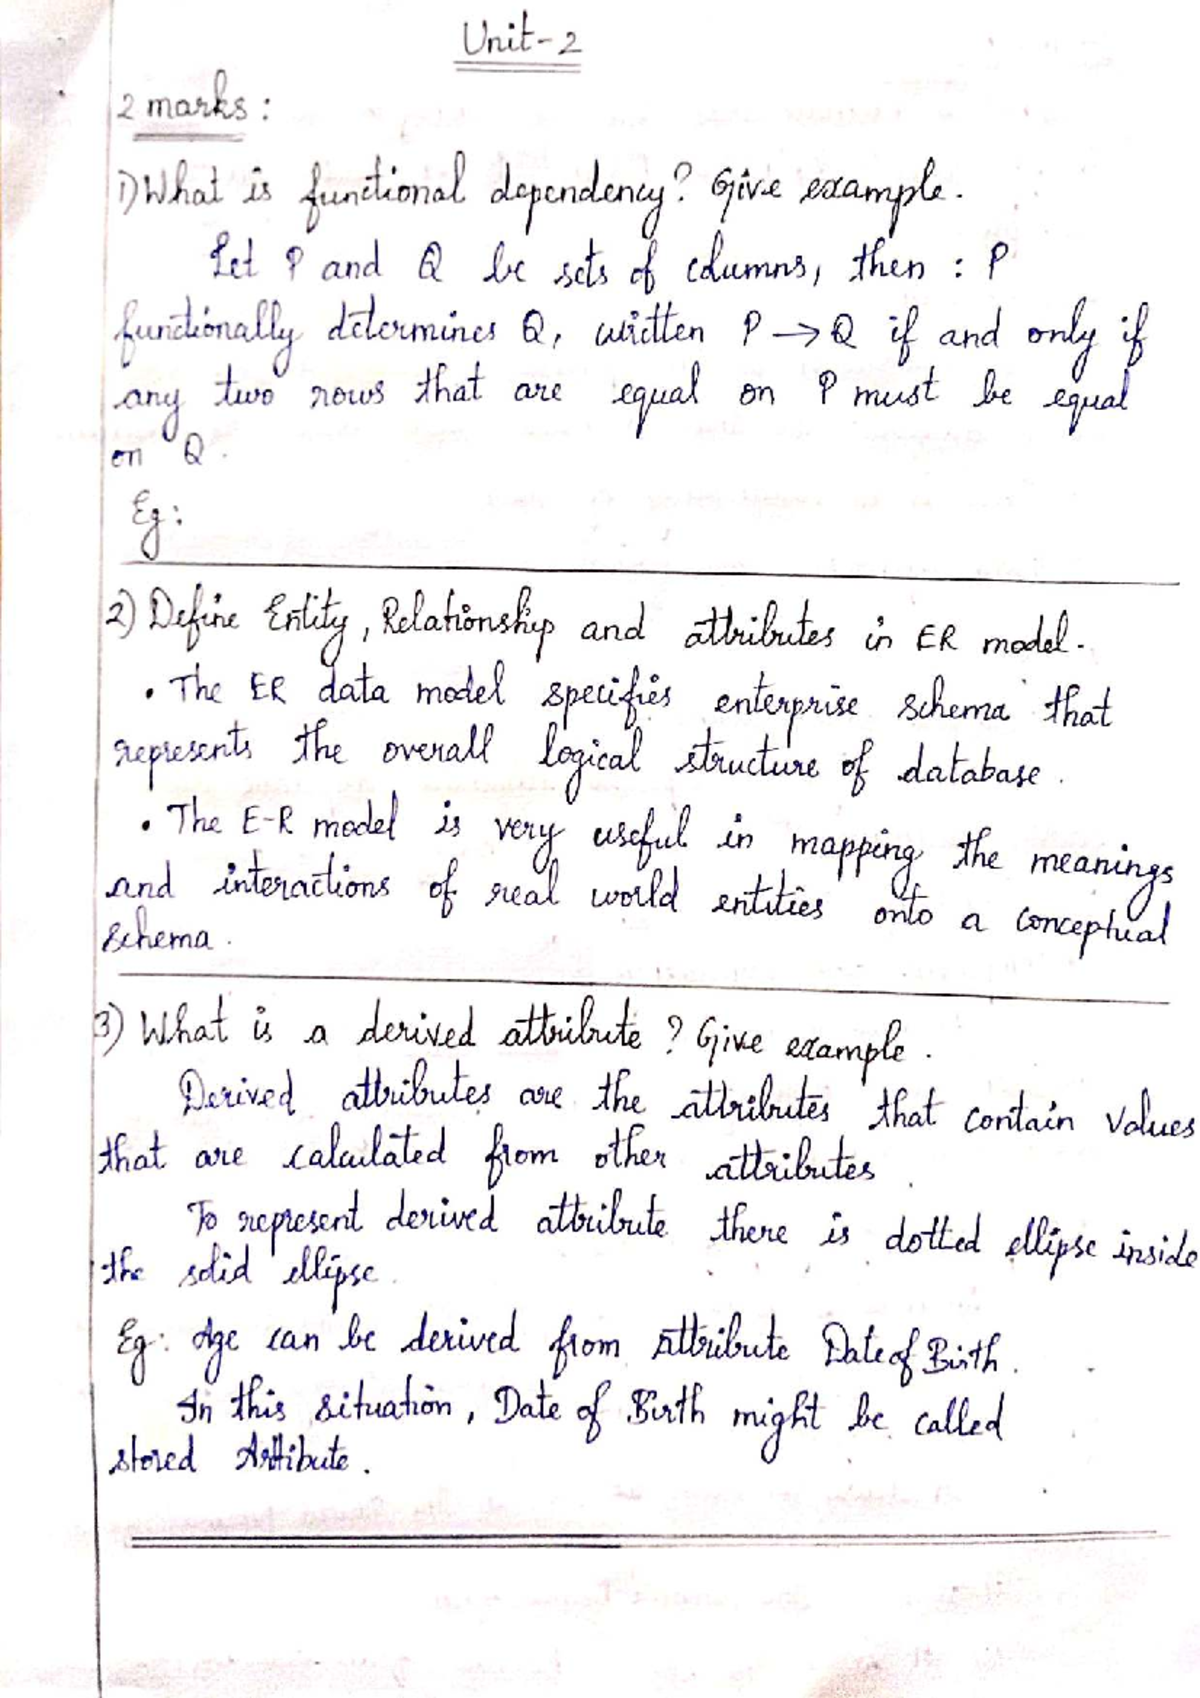 Unit-2
2 marks:
1) What is functional dependency? Give example.
Let P and Q be sets of columns, then : P
functionally determines Q, written P → Q if and only if
any two rows that are equal on P must be equal
on Q.
Eg:
2) Define Entity, Relationship and attributes in ER model.
• The ER data model specifies enterprise schema that
represents the overall logical structure of database.
• The E-R model is very useful in mapping the meanings
and interactions of real world entities onto a conceptual
schema.
3) What is a derived attribute? Give example.
Derived attributes are the attributes that contain values
that are calculated from other attributes
To represent derived attribute there is dotted ellipse inside
the solid ellipse.
Eg: Age can be derived from Attribute Date of Birth.
In this situation, Date of Birth might be called
stored Attibute.